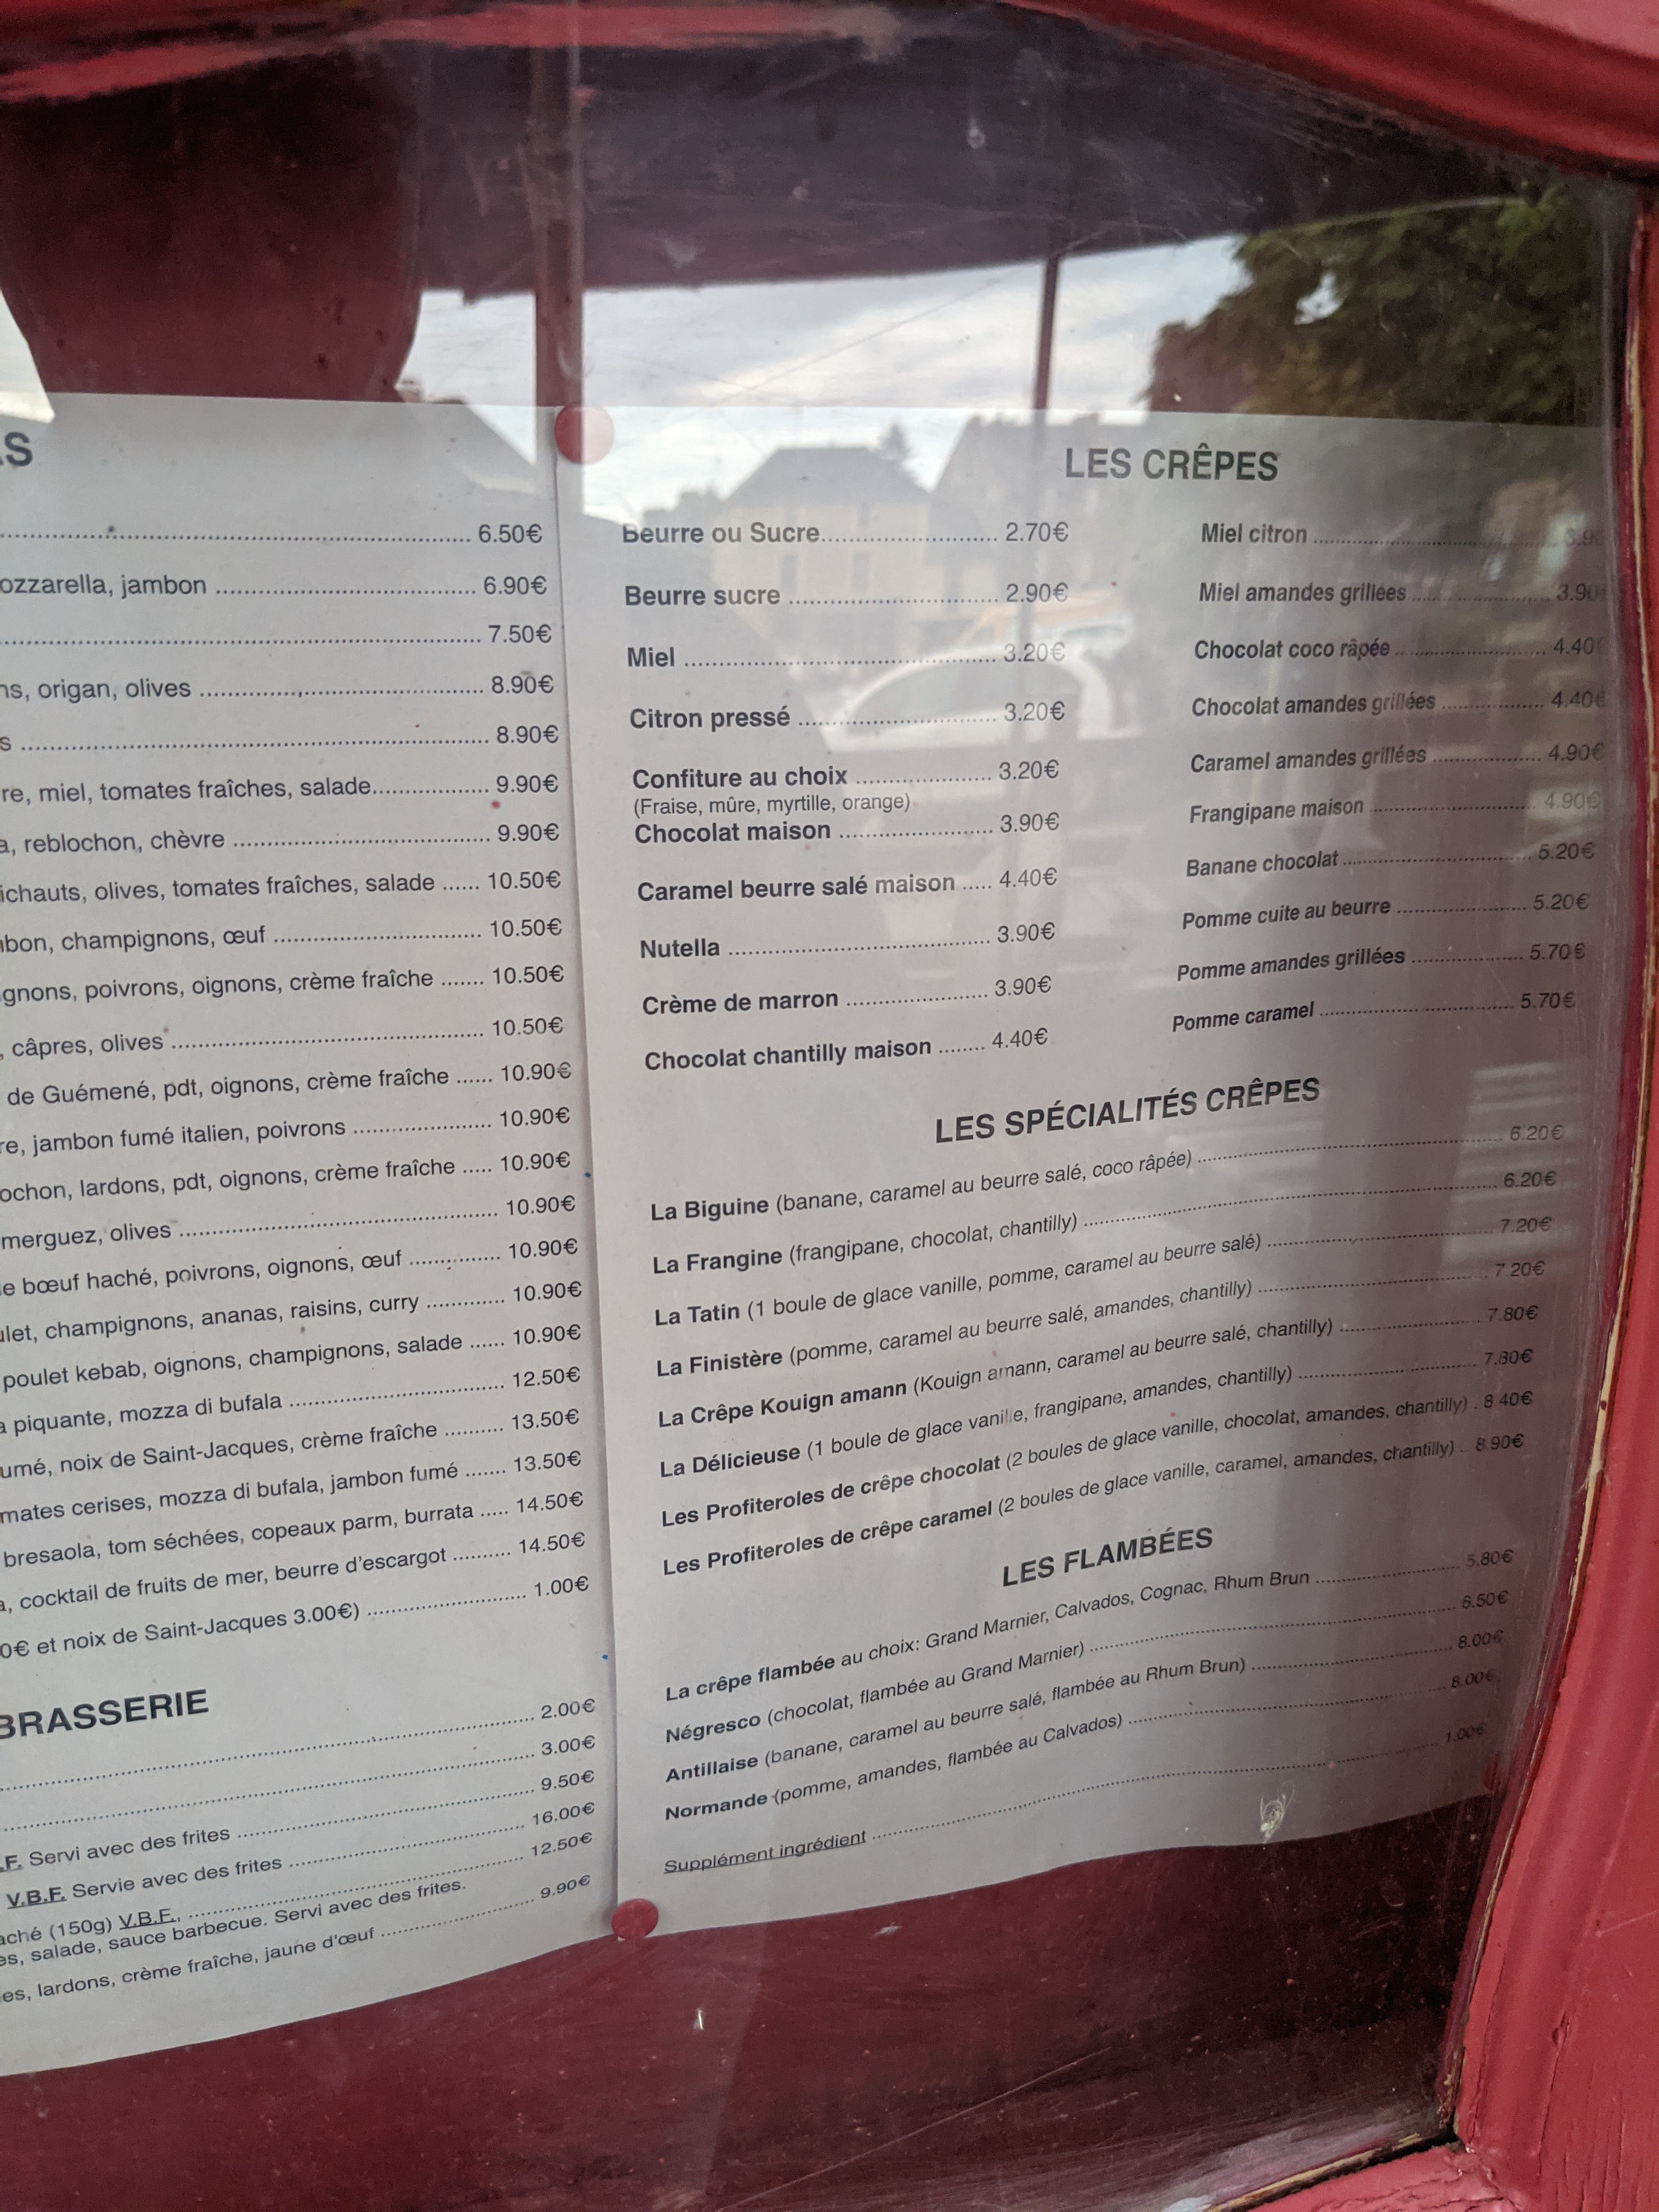 6.50€
ozzarella, jambon ........ 6.90€
7.50€
ns, origan, olives ........ 8.90€
s ........ 8.90€
re, miel, tomates fraîches, salade........ 9.90€
a, reblochon, chèvre ........ 9.90€
ichauts, olives, tomates fraîches, salade ...... 10.50€
bon, champignons, œuf ........ 10.50€
gnons, poivrons, oignons, crème fraîche ....... 10.50€
, câpres, olives ........ 10.50€
de Guémené, pdt, oignons, crème fraîche ...... 10.90€
re, jambon fumé italien, poivrons ........ 10.90€
ochon, lardons, pdt, oignons, crème fraîche ..... 10.90€
merguez, olives ........ 10.90€
e bœuf haché, poivrons, oignons, œuf ........ 10.90€
ulet, champignons, ananas, raisins, curry ........ 10.90€
poulet kebab, oignons, champignons, salade ...... 10.90€
a piquante, mozza di bufala ........ 12.50€
umé, noix de Saint-Jacques, crème fraîche ........ 13.50€
mates cerises, mozza di bufala, jambon fumé ....... 13.50€
bresaola, tom séchées, copeaux parm, burrata ..... 14.50€
a, cocktail de fruits de mer, beurre d'escargot ........ 14.50€
0€ et noix de Saint-Jacques 3.00€) ........ 1.00€
BRASSERIE
........ 2.00€
........ 3.00€
.F. Servi avec des frites ........ 9.50€
V.B.F. Servie avec des frites ........ 16.00€
aché (150g) V.B.F., ........ 12.50€
es, salade, sauce barbecue. Servi avec des frites.
es, lardons, crème fraîche, jaune d'œuf ........ 9.90€
LES CRÊPES
Beurre ou Sucre........ 2.70€
Beurre sucre ........ 2.90€
Miel ........ 3.20€
Citron pressé ........ 3.20€
Confiture au choix ........ 3.20€
(Fraise, mûre, myrtille, orange)
Chocolat maison ........ 3.90€
Caramel beurre salé maison ..... 4.40€
Nutella ........ 3.90€
Crème de marron ........ 3.90€
Chocolat chantilly maison ........ 4.40€
Miel citron ........ 3.90
Miel amandes grillées ........ 3.90
Chocolat coco râpée ........ 4.40€
Chocolat amandes grillées ........ 4.40€
Caramel amandes grillées ........ 4.90€
Frangipane maison ........ 4.90€
Banane chocolat ........ 5.20€
Pomme cuite au beurre ........ 5.20€
Pomme amandes grillées ........ 5.70€
Pomme caramel ........ 5.70€
LES SPÉCIALITÉS CRÊPES
La Biguine (banane, caramel au beurre salé, coco râpée) ........ 6.20€
La Frangine (frangipane, chocolat, chantilly) ........ 6.20€
La Tatin (1 boule de glace vanille, pomme, caramel au beurre salé) ........ 7.20€
La Finistère (pomme, caramel au beurre salé, amandes, chantilly) ........ 7.20€
La Crêpe Kouign amann (Kouign amann, caramel au beurre salé, chantilly) ........ 7.80€
La Délicieuse (1 boule de glace vanille, frangipane, amandes, chantilly) ........ 7.80€
Les Profiteroles de crêpe chocolat (2 boules de glace vanille, chocolat, amandes, chantilly) . 8.40€
Les Profiteroles de crêpe caramel (2 boules de glace vanille, caramel, amandes, chantilly) .. 8.90€
LES FLAMBÉES
La crêpe flambée au choix: Grand Marnier, Calvados, Cognac, Rhum Brun ........ 5.80€
Négresco (chocolat, flambée au Grand Marnier) ........ 6.50€
Antillaise (banane, caramel au beurre salé, flambée au Rhum Brun) ........ 8.00€
Normande (pomme, amandes, flambée au Calvados) ........ 8.00€
Supplément ingrédient ........ 1.00€